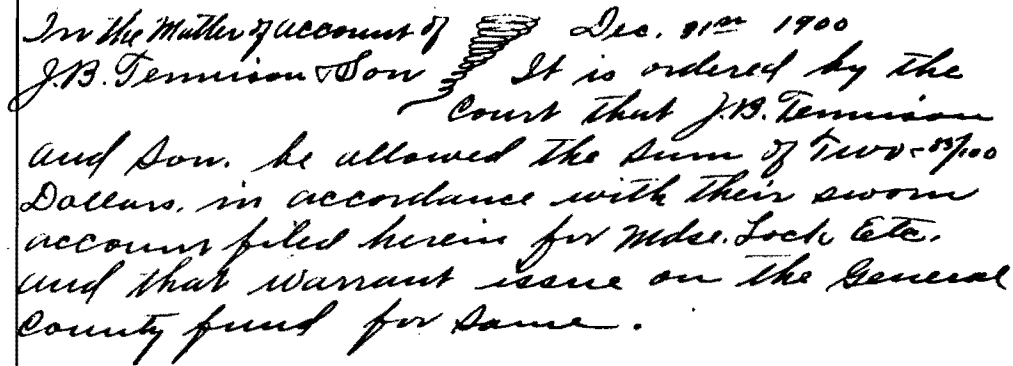 In the Matter of account of Dec. 31st 1900
J.B. Tennison & Son It is ordered by the
Court that J.B. Tennison
and Son. be allowed the sum of Two - 83/100
Dollars. in accordance with their sworn
account filed herein for Mdse. Lock Etc.
and that warrant issue on the General
County fund for same.